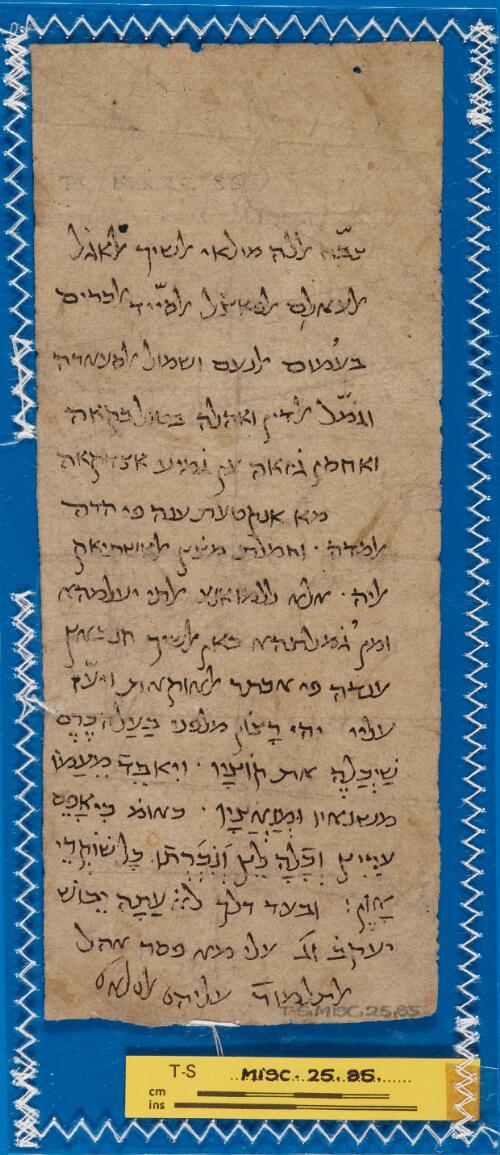 אללה מולאי אלשיך אלאגל
אלעאלם אלפאצל אלסייד אלכרים
בעמום אלנעם ושמול אלסעאדה
וגמّל אלדין ואהלה בטול בקאה
ואחסן גזאה ען גמיע אצדקאה
מא אנקטעת ענה פי הדה
אלמדה · וחמלת מצץ אלאשתיאק
אליה · אלא ללמואנע אלתי יעלמהא
ומן גמלתהא כאן אלשיך
ענדה פי אכתר אלאוקאת
עליי יהי רָצון מלפני בַעַל
שֶיְכַלֶה את קוֹצָיו · וִיאַבֵד מֵעַמוֹ
משנאיו וּמְנַאֲצָיו · כאומ כִי אָפֵס
עריץ וְכָלָה לֵץ וְנִכְרְתוּ כָל שוֹקְדֵי
אָוֶן : ובעד דלך לא עַתָה יֵבוֹש
יעקב וג עלי מא פסר אהל
אלתלמוד עליהם אלסלאם
T-S MISC. 25.85
T-S MISC. 25. 85.
cm
ins